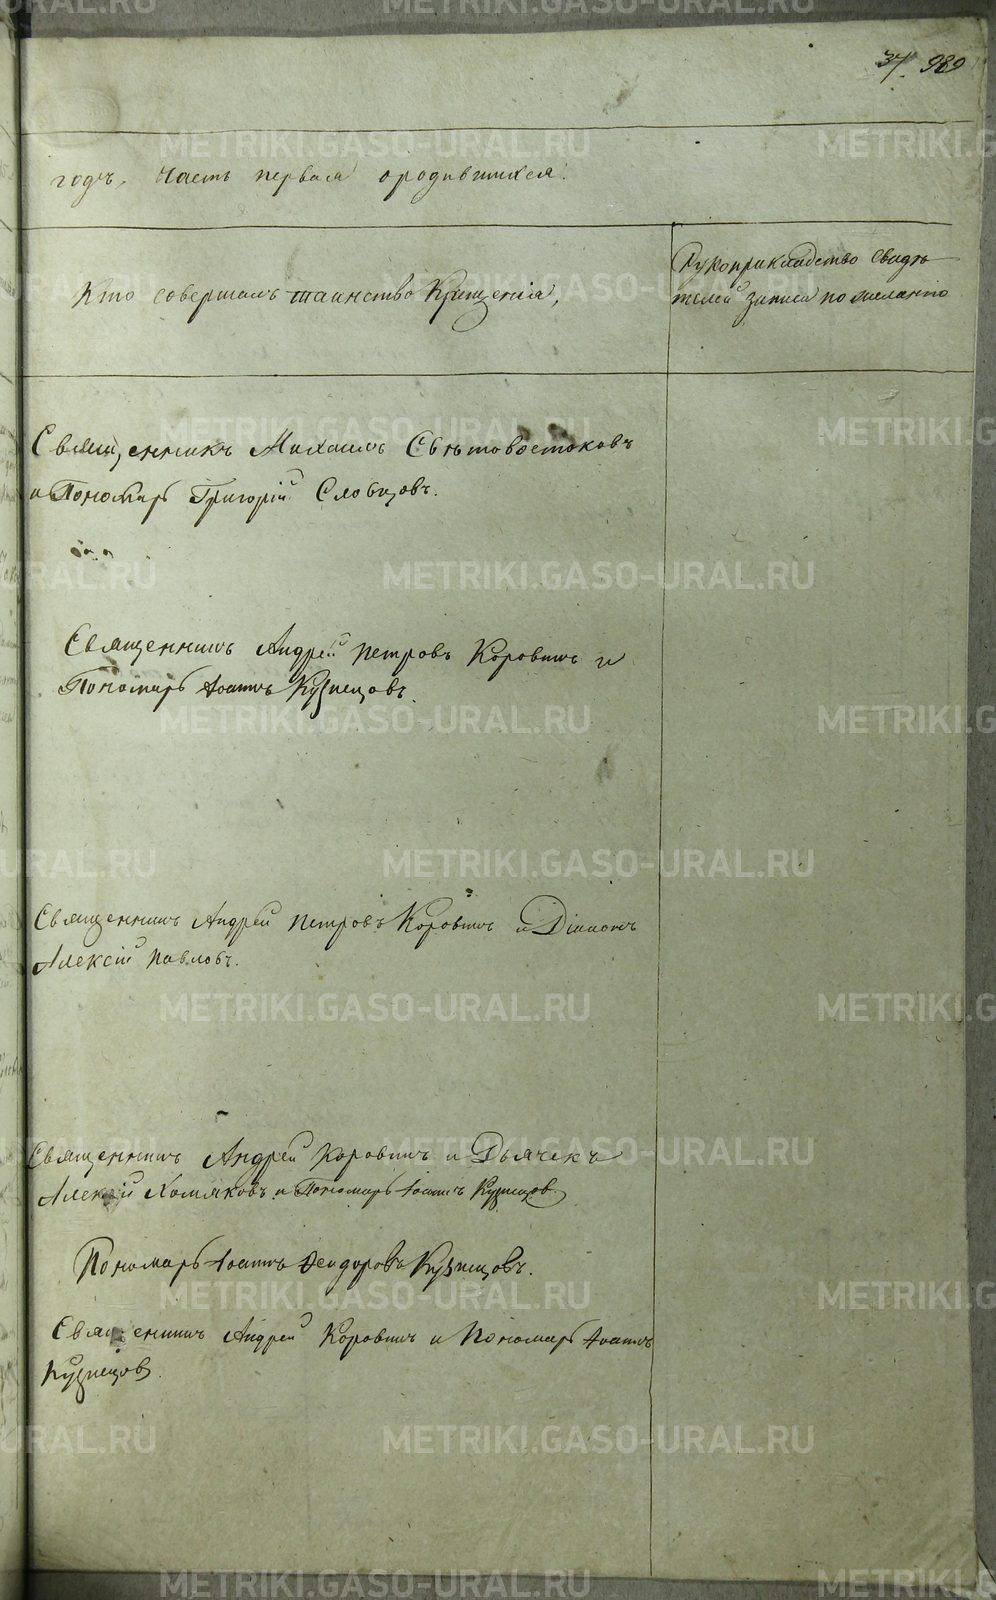 37. 989
годъ, Часть первая ородившихся.
Кто совершалъ таинство Крещенія,
Рукоприкладство Свидѣ
телей записи по желанію
Священникъ Михаилъ Свѣтовостоковъ
и Пономарь Григорій Словцовъ.
Священникъ Андрей Петровъ Коровинъ и
Пономарь Іоаннъ Кузнецовъ.
Священникъ Андрей Петровъ Коровинъ и Діаконъ
Алексій Павловъ.
Священникъ Андрей Коровинъ и Дьячекъ
Алексій Хомяковъ и Пономарь Іоаннъ Кузнецов
Пономарь Іоаннъ Феодоровъ Кузнецовъ.
Священникъ Андрей Коровинъ и Пономарь Іоаннъ
Кузнецов.
METRIKI.GASO-URAL.RU